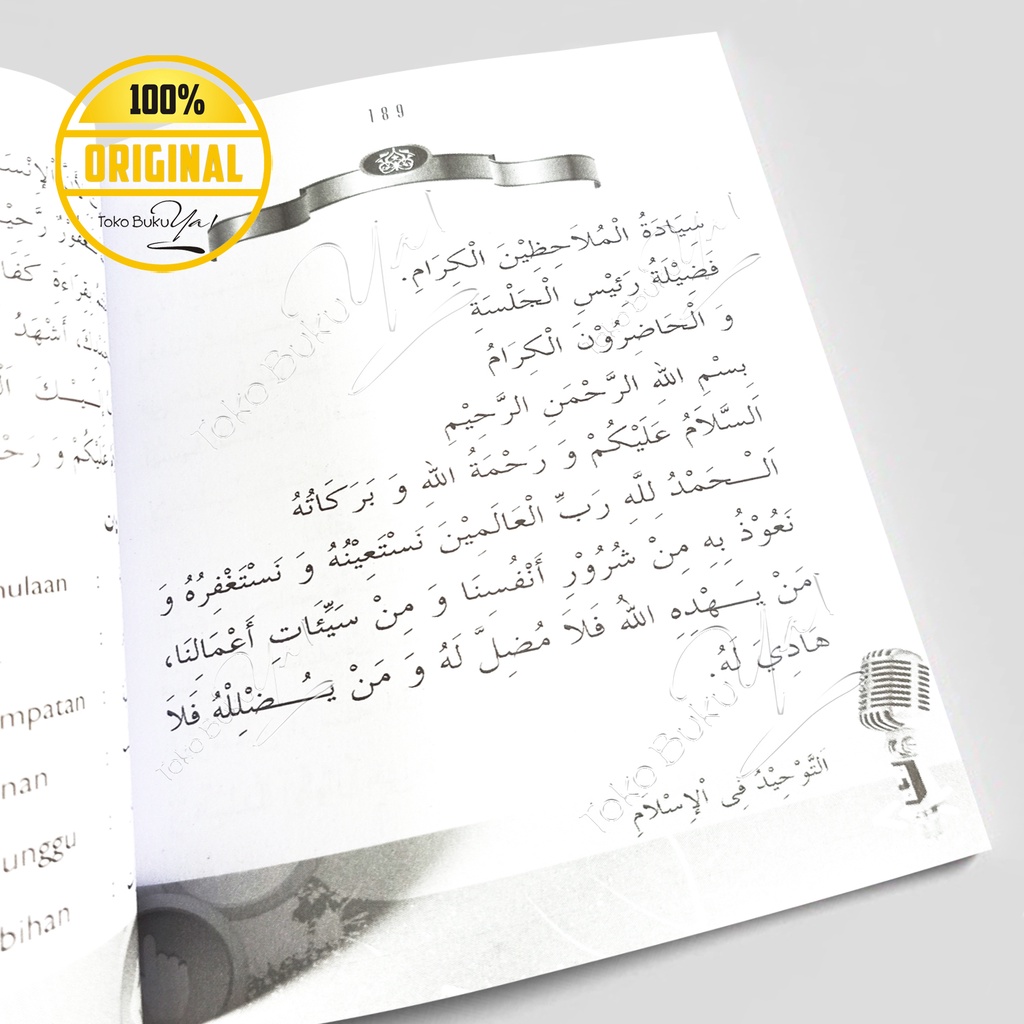 100%
ORIGINAL
Toko Buku Ya!
189
سَيَادَةُ الْمُلَاحِظِيْنَ الْكِرَامِ.
فَضِيْلَةُ رَئِيْسِ الْجَلْسَةِ
وَ الْحَاضِرُوْنَ الْكِرَامُ
بِسْمِ اللهِ الرَّحْمَنِ الرَّحِيْمِ
اَلسَّلَامُ عَلَيْكُمْ وَ رَحْمَةُ اللهِ وَ بَرَكَاتُهُ
اَلْـحَمْدُ لِلَّهِ رَبِّ الْعَالَمِيْنَ نَسْتَعِيْنُهُ وَ نَسْتَغْفِرُهُ وَ
نَعُوْذُ بِهِ مِنْ شُرُوْرِ أَنْفُسِنَا وَ مِنْ سَيِّئَاتِ أَعْمَالِنَا،
مَنْ يَـهْدِهِ اللهُ فَلَا مُضِلَّ لَهُ وَ مَنْ يُـضْلِلْهُ فَلَا
هَادِيَ لَهُ.
اَلتَّوْحِيْدُ فِى اْلإِسْلَامِ
Toko Buku Ya!
Toko Buku Ya!
Toko Buku Ya!
بِقِرَاءَةِ
أَشْهَدُ
عَلَيْكُمْ وَ
nulaan :
mpatan :
nan :
unggu :
bihan :